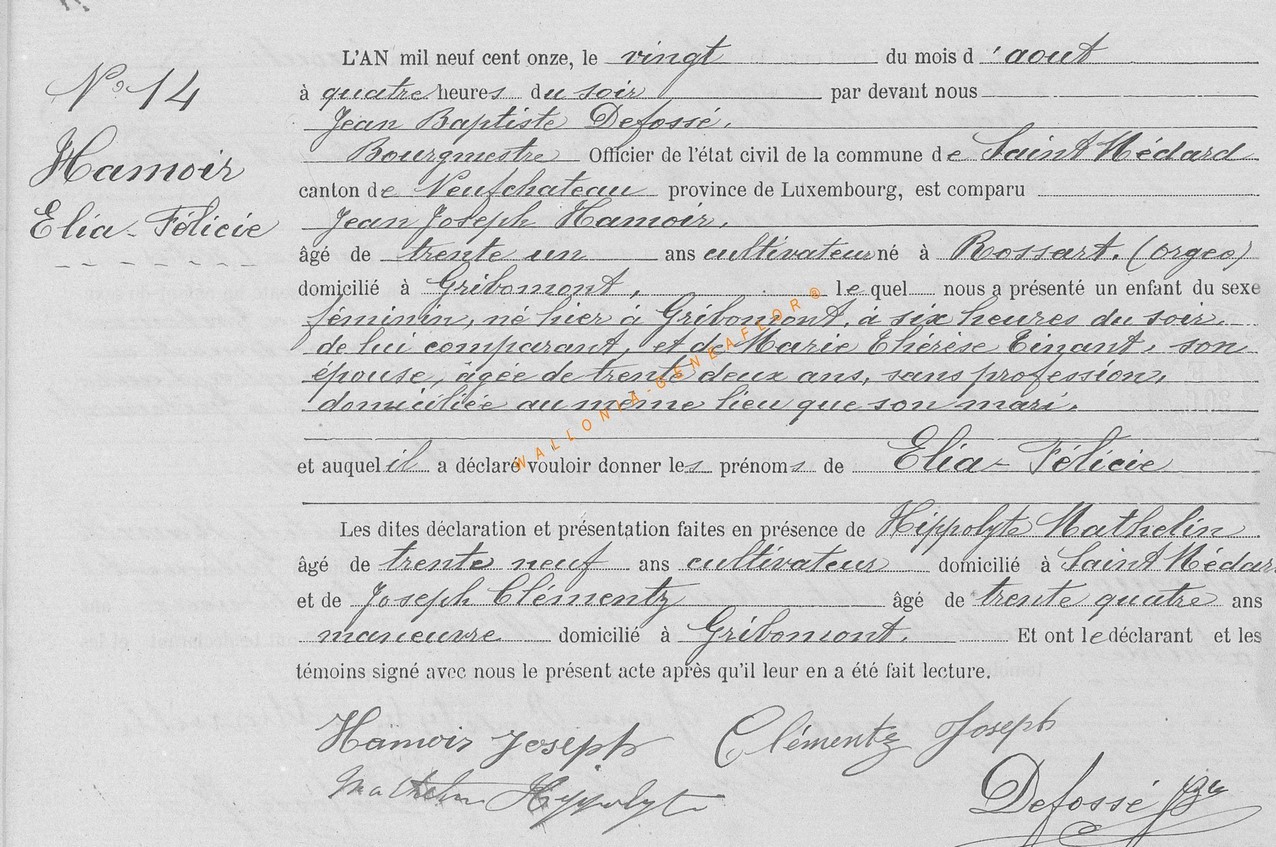 L'AN mil neuf cent onze, le vingt du mois d'aout
N° 14
à quatre heures du soir par devant nous
Jean Baptiste Defossé.
Hamoir
Bourgmestre Officier de l'état civil de la commune de Saint Médard
canton de Neufchateau province de Luxembourg, est comparu
Elia-Félicie
Jean Joseph Hamoir.
âgé de trente un ans cultivateur né à Rossart. (orgeo)
domicilié à Gribomont, lequel nous a présenté un enfant du sexe
féminin, né hier à Gribomont, à six heures du soir
de lui comparant, et de Marie Thérèse Einant, son
épouse, âgée de trente deux ans, sans profession,
domiciliée au même lieu que son mari.
WALLONIA-GENEAFLOR®
et auquel il a déclaré vouloir donner les prénoms de Elia-Félicie
Les dites déclaration et présentation faites en présence de Hippolyte Mathelin
âgé de trente neuf ans cultivateur domicilié à Saint Médar
et de Joseph Clémentz âgé de trente quatre ans
manœuvre domicilié à Gribomont. Et ont le déclarant et les
témoins signé avec nous le présent acte après qu'il leur en a été fait lecture.
Hamoir Joseph Clémentz Joseph
Mathelin Hippolyte
Defossé